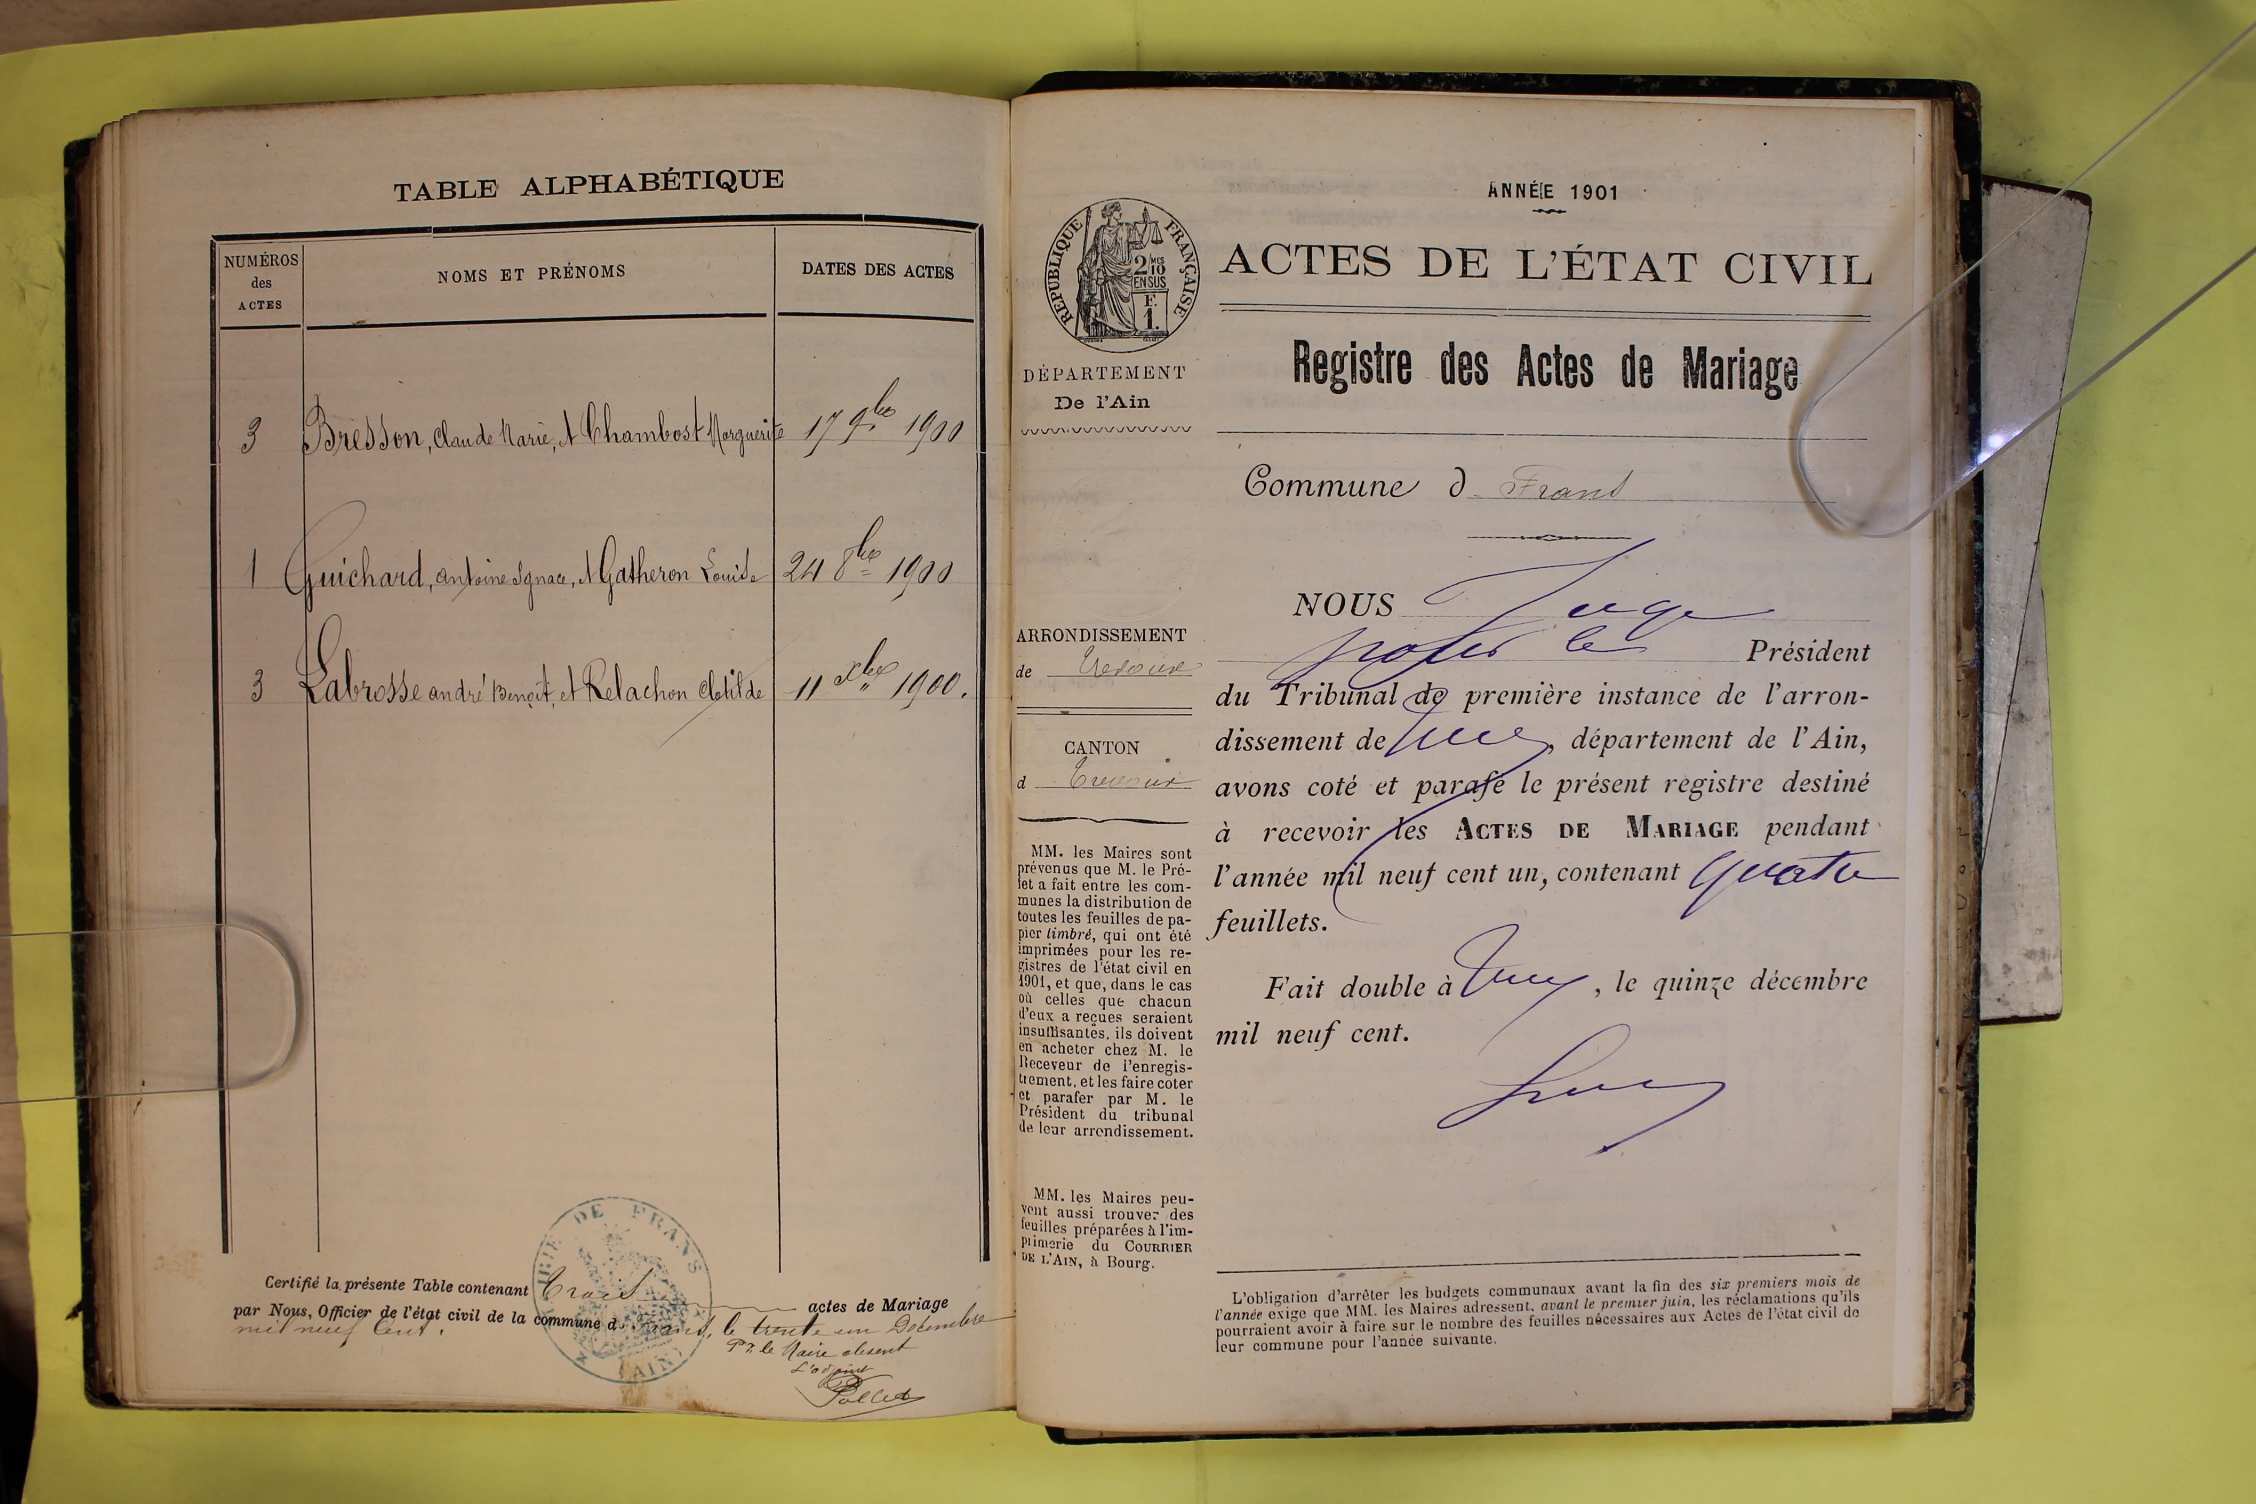 TABLE ALPHABÉTIQUE
NUMÉROS des ACTES
NOMS ET PRÉNOMS
DATES DES ACTES
3 Bresson, Claude Marie, et Chambost Marguerite 17 9bre 1900
1 Guichard, antoine Ignace, et Gatheron Louise 24 8bre 1900
3 Labrosse andré Benoit, et Relachon Clotilde 11 Xbre 1900.
Certifié la présente Table contenant Trois actes de Mariage
par Nous, Officier de l'état civil de la commune d Frans, le trente un Décembre
mil neuf cent.
Pr. le Maire absent
L'adjoint
Pollet
MAIRIE DE FRANS
(AIN)
ANNÉE 1901
RÉPUBLIQUE FRANÇAISE
2/10 MES
EN SUS
F.
1.
ACTES DE L'ÉTAT CIVIL
Registre des Actes de Mariage
DÉPARTEMENT
De l'Ain
Commune d Frans
ARRONDISSEMENT
de Trevoux
CANTON
d Trevoux
MM. les Maires sont
prévenus que M. le Pré-
fet a fait entre les com-
munes la distribution de
toutes les feuilles de pa-
pier timbré, qui ont été
imprimées pour les re-
gistres de l'état civil en
1901, et que, dans le cas
où celles que chacun
d'eux a reçues seraient
insuffisantes, ils doivent
en acheter chez M. le
Receveur de l'enregis-
trement, et les faire coter
et parafer par M. le
Président du tribunal
de leur arrondissement.
MM. les Maires peu-
vent aussi trouver des
feuilles préparées à l'im-
primerie du COURRIER
DE L'AIN, à Bourg.
NOUS Juge
pour le Président
du Tribunal de première instance de l'arron-
dissement de , département de l'Ain,
avons coté et parafé le présent registre destiné
à recevoir les ACTES DE MARIAGE pendant
l'année mil neuf cent un, contenant quatre
feuillets.
Fait double à , le quinze décembre
mil neuf cent.
L'obligation d'arrêter les budgets communaux avant la fin des six premiers mois de
l'année exige que MM. les Maires adressent, avant le premier juin, les réclamations qu'ils
pourraient avoir à faire sur le nombre des feuilles nécessaires aux Actes de l'état civil de
leur commune pour l'année suivante.